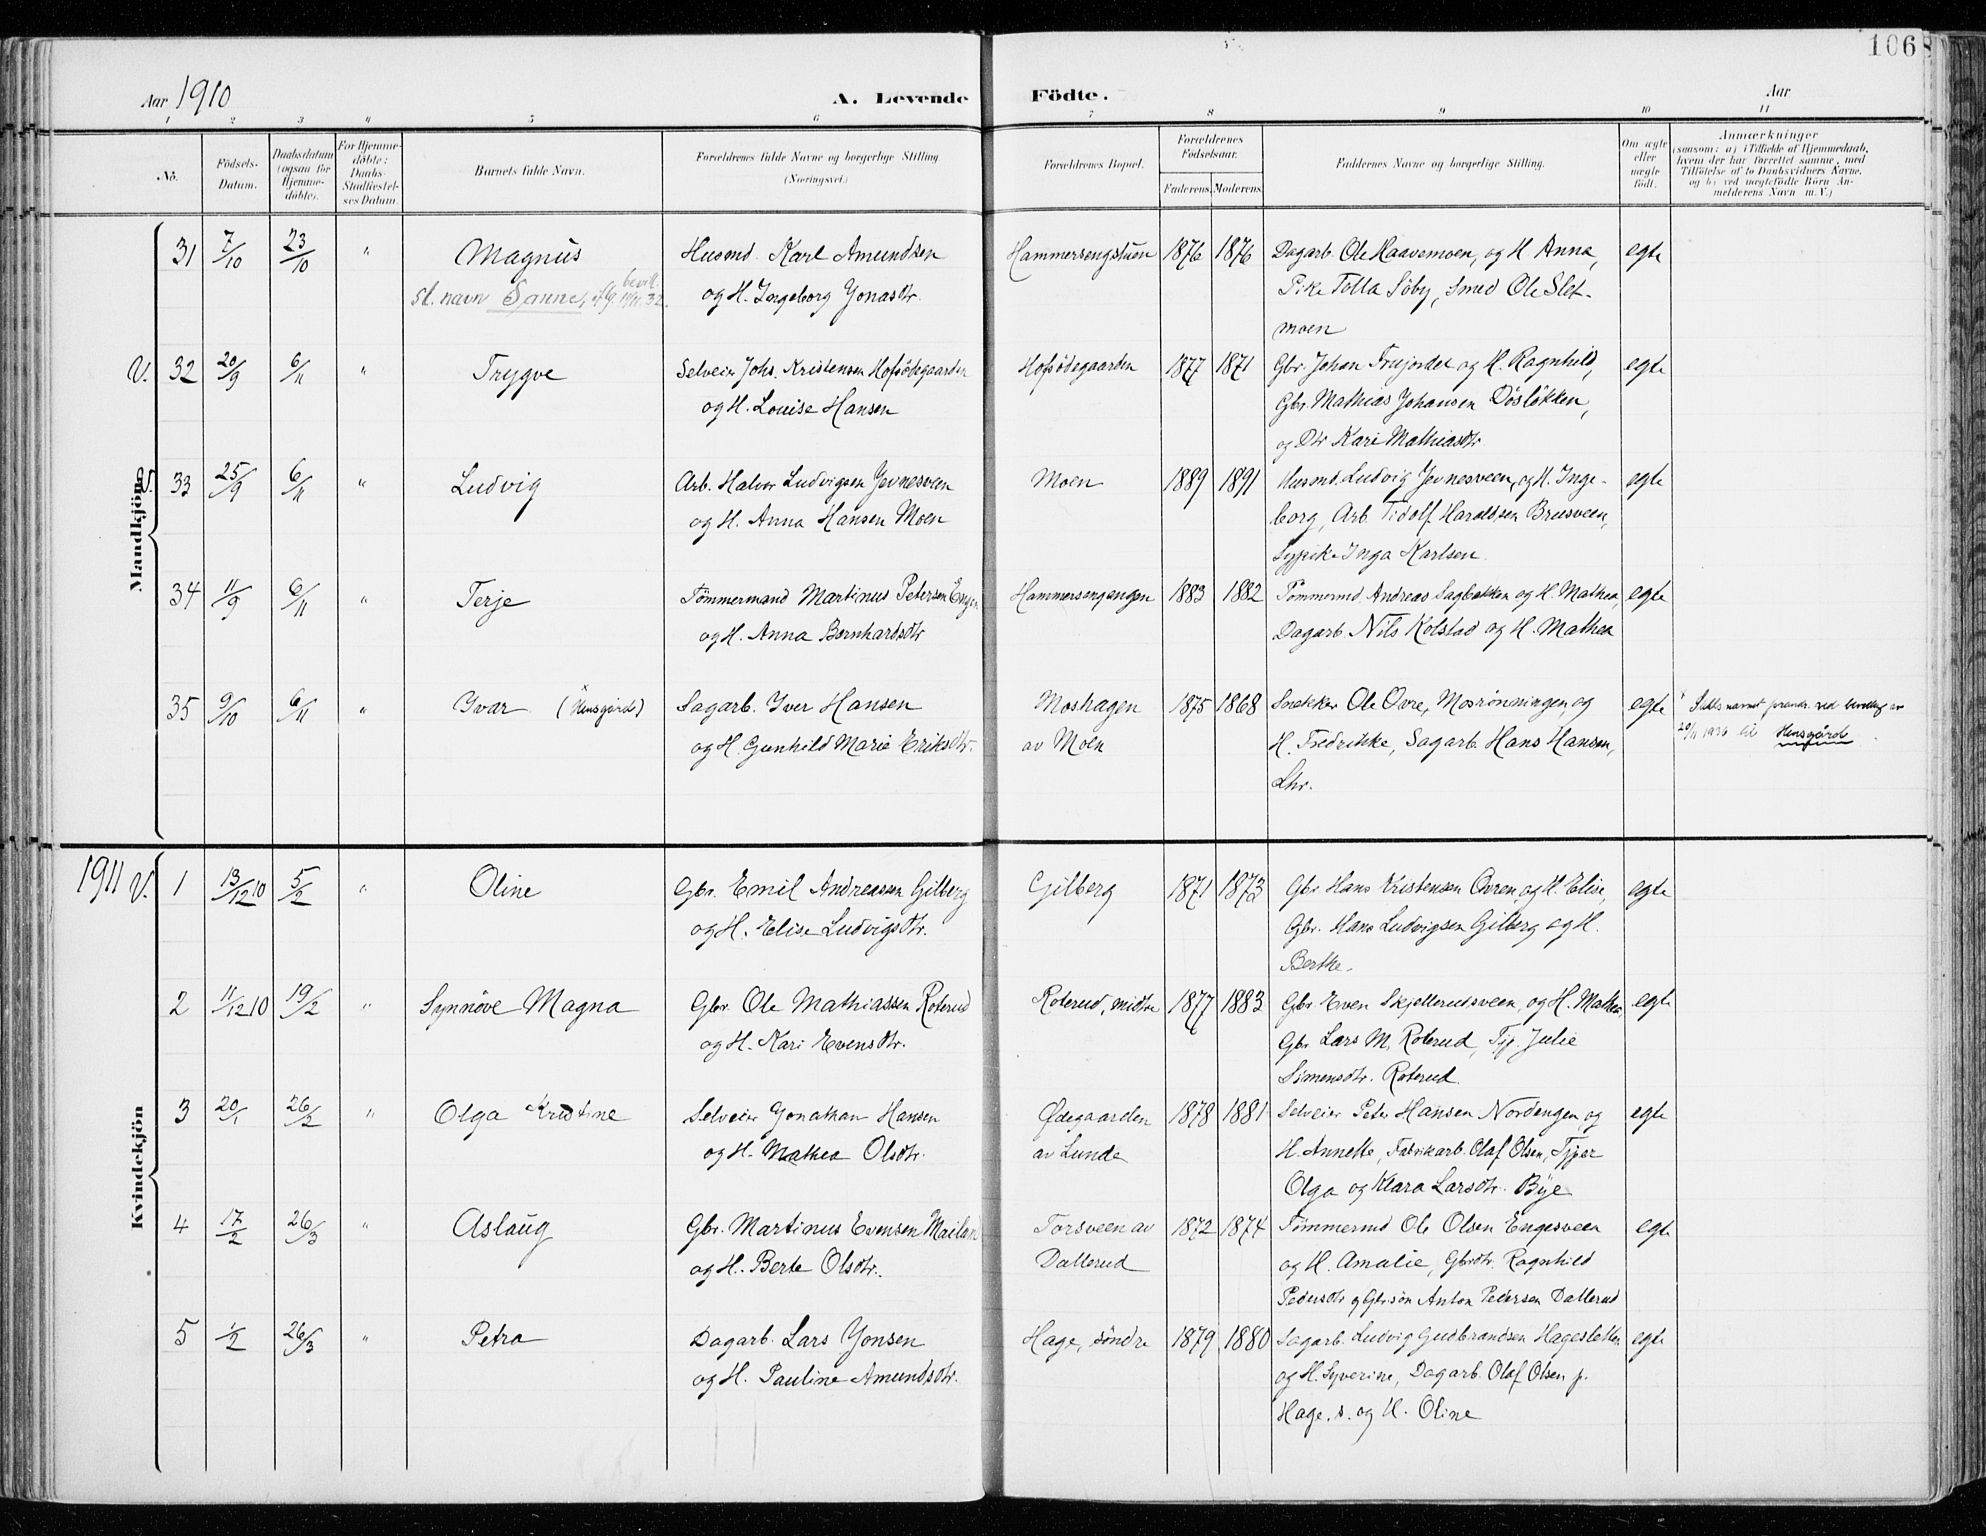 106
Aar 1910
A. Levende Födte.
Aar
1 2 3 4 5 6 7 8 9 10 11
No.
Födsels-Datum.
Daabsdatum (ogsaa for Hjemme-döbte).
For Hjemme-döbte: Daabs-Stadfæstel-ses Datum.
Barnets fulde Navn.
Forældrenes fulde Navne og borgerlige Stilling (Næringsvei.)
Forældrenes Bopæl.
Forældrenes Födselsaar.
Faderens. Moderens.
Faddernes Navne og borgerlige Stilling.
Om ægte eller uægte födt.
Anmærkninger
(saasom: a) i Tilfælde af Hjemmedaab, hvem der har forrettet samme, med Tilföielse af to Daabsvidners Navne, og b) ved uægtefödte Börn An-melderens Navn m. V.)
Mandkjön
31 7/10 23/10 " Magnus Husmd. Karl Amundsen Hammersengstuen 1876 1876 Dagarb. Ole Haavemoen, og H. Anna, egte
sl. navn Sanne, bevill. 11/11.32. og H. Ingeborg Jonasdtr. Pike Tolla Söby, Smed Ole Slet-
moen
V. 32 20/9 6/11 " Trygve Selveier Johs. Kristensen Hofsödegaarden Hofsödegaarden 1877 1871 Gbr. Johan Trejordet og H. Ragnhild, egte
og H. Louise Hansen Gbr. Mathias Johansen Dösløkken,
og Dtr Kari Mathiasdtr.
V. 33 25/9 6/11 " Ludvig Arb. Halvor Ludvigsen Jevnesveen Moen 1889 1891 Husmd. Ludvig Jevnesveen, og H. Inge- egte
og H. Anna Hansen Moen borg, Arb. Tidolf Haraldsen Brusveen,
Sypike Inga Karlsen
34 11/9 6/11 " Terje Tömmermand Martinus Petersen Engen Hammersengengen 1883 1882 Tömmermd. Andreas Sagbakken og H. Mathea, egte
og H. Anna Bernhardsdtr Dagarb. Nils Kolstad og H. Mathea
35 9/10 6/11 " Ivar (Hensgård) Sagarb. Iver Hansen Moshagen 1875 1868 Snekker Ole Övre, Mosrönningen, og egte Slektsnavnet forandr. ved bevilling av
og H. Gunhild Marie Eriksdtr. av Moen H. Fredrikke, Sagarb. Hans Hansen, 20/11 1936 til Hensgård.
Lhr.
1911
Kvindekjön
V. 1 13/12 10 5/2 " Oline Gbr. Emil Andreassen Gilberg Gilberg 1871 1873 Gbr. Hans Kristensen Övren, og H. Elise, egte
og H. Elise Ludvigsdtr. Gbr. Hans Ludvigsen Gilberg og H.
Berthe.
2 11/12 10 19/2 " Synnöve Magna Gbr. Ole Mathiassen Roterud Roterud, midtre 1877 1883 Gbr Even Skjellerudsveen, og H. Mathea, egte
og H. Kari Evensdtr. Gbr Lars M. Roterud, Tjp. Julie
Simensdtr. Roterud.
3 20/1 26/2 " Olga Kristine Selveier Jonathan Hansen Ødegaarden 1878 1881 Selveier Peter Hansen Nordengen og egte
og H. Mathea Olsdtr. av Lunde H. Annette, Fabrikarb. Olaf Olsen, Tjper
Olga og Klara Larsdtr. Bye
4 17/2 26/3 " Aslaug Gbr. Martinus Evensen Mailand Torsveen av 1872 1874 Tömmermd Ole Olsen Engesveen egte
og H. Berte Olsdtr. Dallerud og H. Amalie, Gbrdtr. Ragnhild
Pedersdtr og Gbrsön Anton Pedersen Dallerud
5 1/2 26/3 " Petra Dagarb. Lars Jonsen Hage, söndre 1879 1880 Sagarb. Ludvig Gudbrandsen Hagesletten egte
og H. Pauline Amundsdtr. og H. Syverine, Dagarb. Olaf Olsen p.
Hage, s. og H. Oline